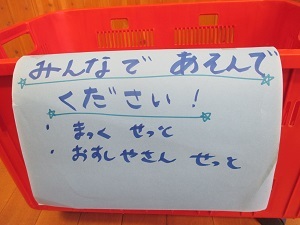 みんなで あそんで
ください!
・まっく せっと
・おすしやさん せっと